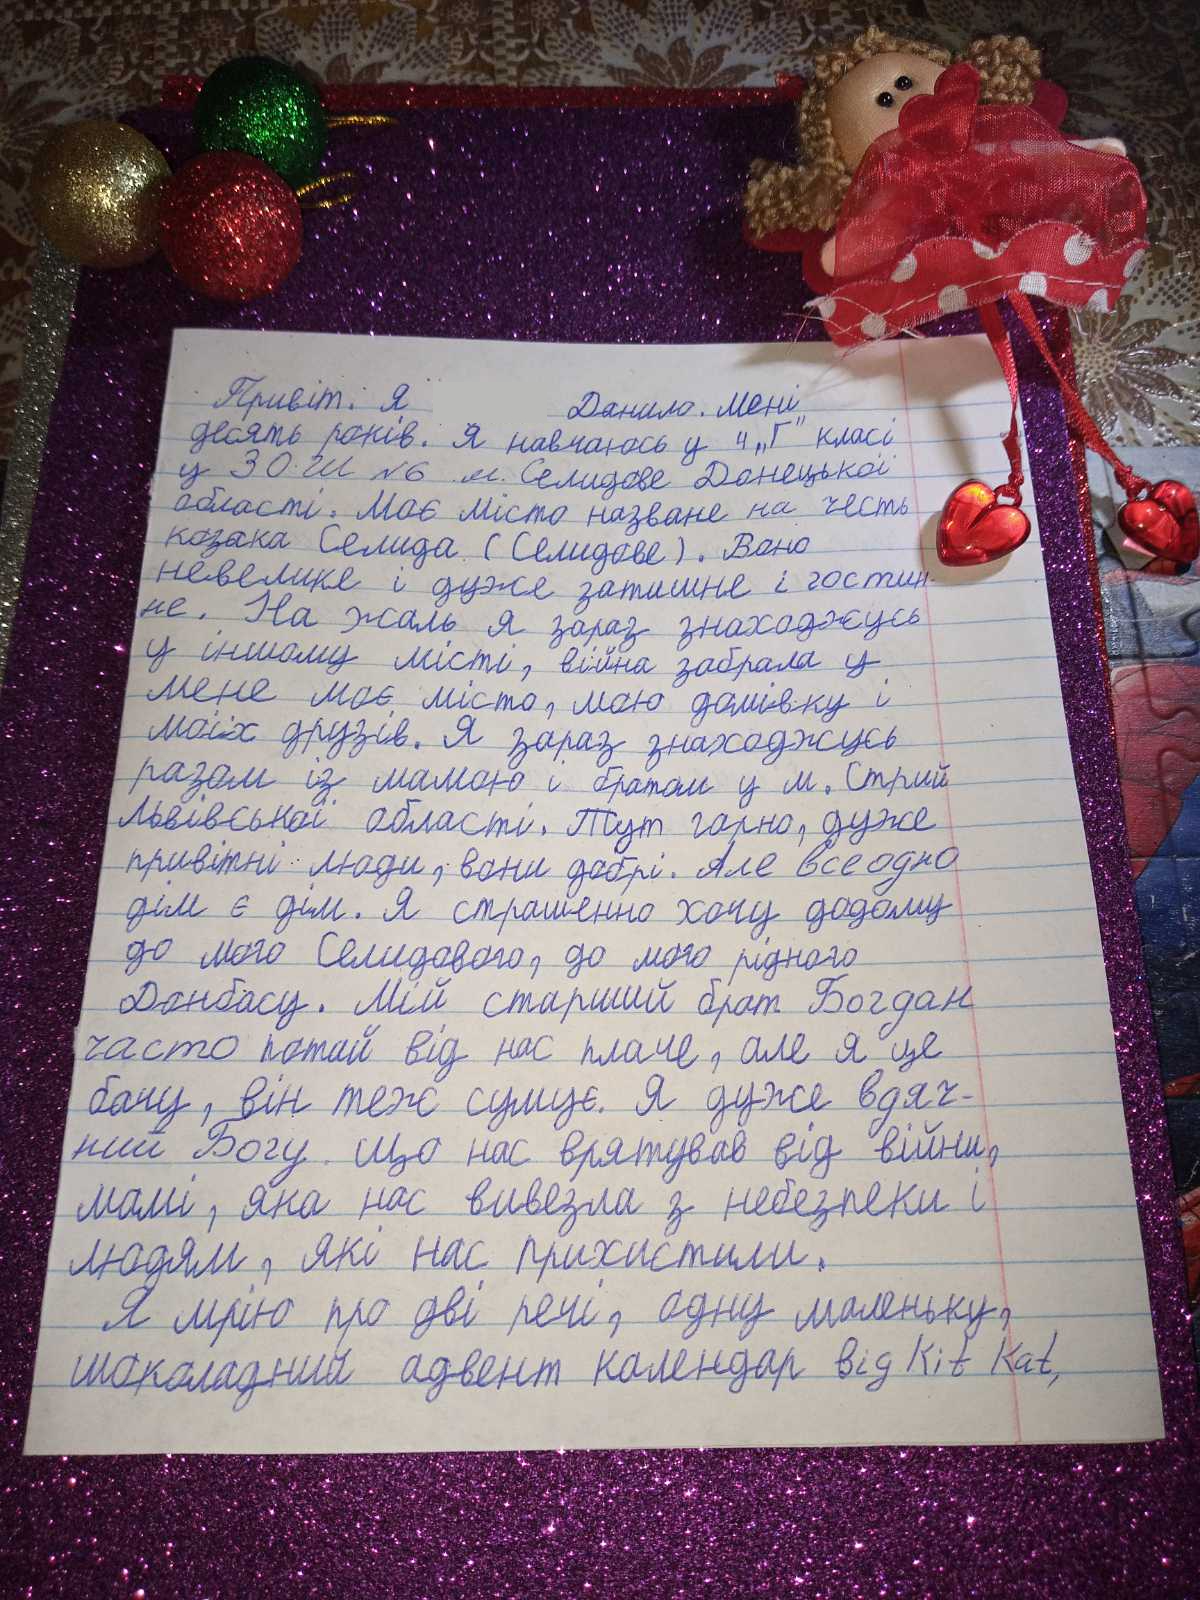 Привіт. Я Данило. Мені
десять років. Я навчаюсь у 4 „Г" класі
у ЗОШ №6 м. Селидове Донецької
області. Моє місто назване на честь
козака Селида (Селидове). Воно
невелике і дуже затишне і гостин-
не. На жаль я зараз знаходжусь
у іншому місті, війна забрала у
мене моє місто, мою домівку і
моїх друзів. Я зараз знаходжусь
разом із мамою і братом у м. Стрий
Львівської області. Тут гарно, дуже
привітні люди, вони добрі. Але всеодно
дім є дім. Я страшенно хочу додому
до мого Селидового, до мого рідного
Донбасу. Мій старший брат Богдан
часто потай від нас плаче, але я це
бачу, він теж сумує. Я дуже вдяч-
ний Богу що нас врятував від війни,
мамі, яка нас вивезла з небезпеки і
людям, які нас прихистили.
Я мрію про дві речі, одну маленьку,
шоколадний адвент календар від Kit Kat,